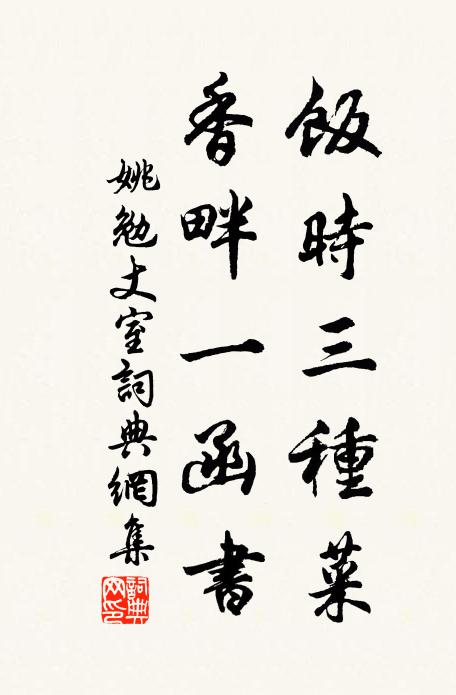 飯時三種菜
香畔一函書
姚勉丈室詞典網集
詞典網印